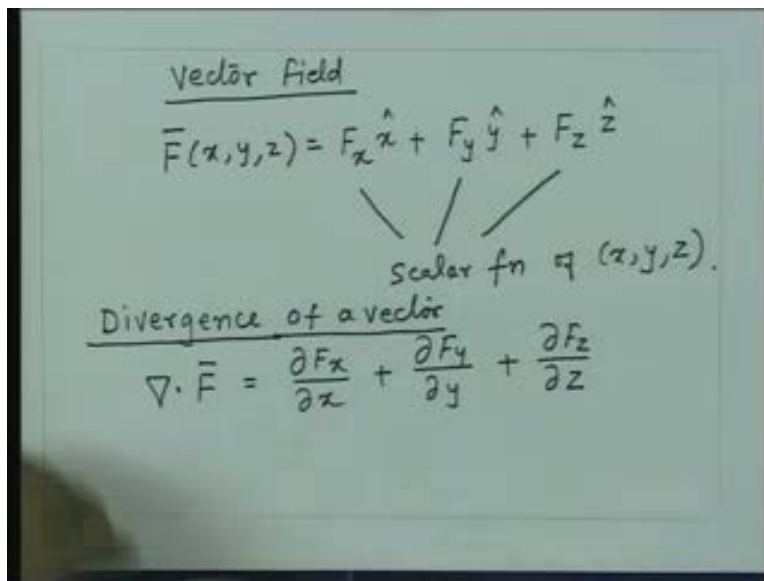 Vector field
F̄(x,y,z) = Fₓ x̂ + F_y ŷ + F_z ẑ
scalar fn of (x,y,z).
Divergence of a vector
∇· F̄ = ∂Fₓ/∂x + ∂F_y/∂y + ∂F_z/∂z